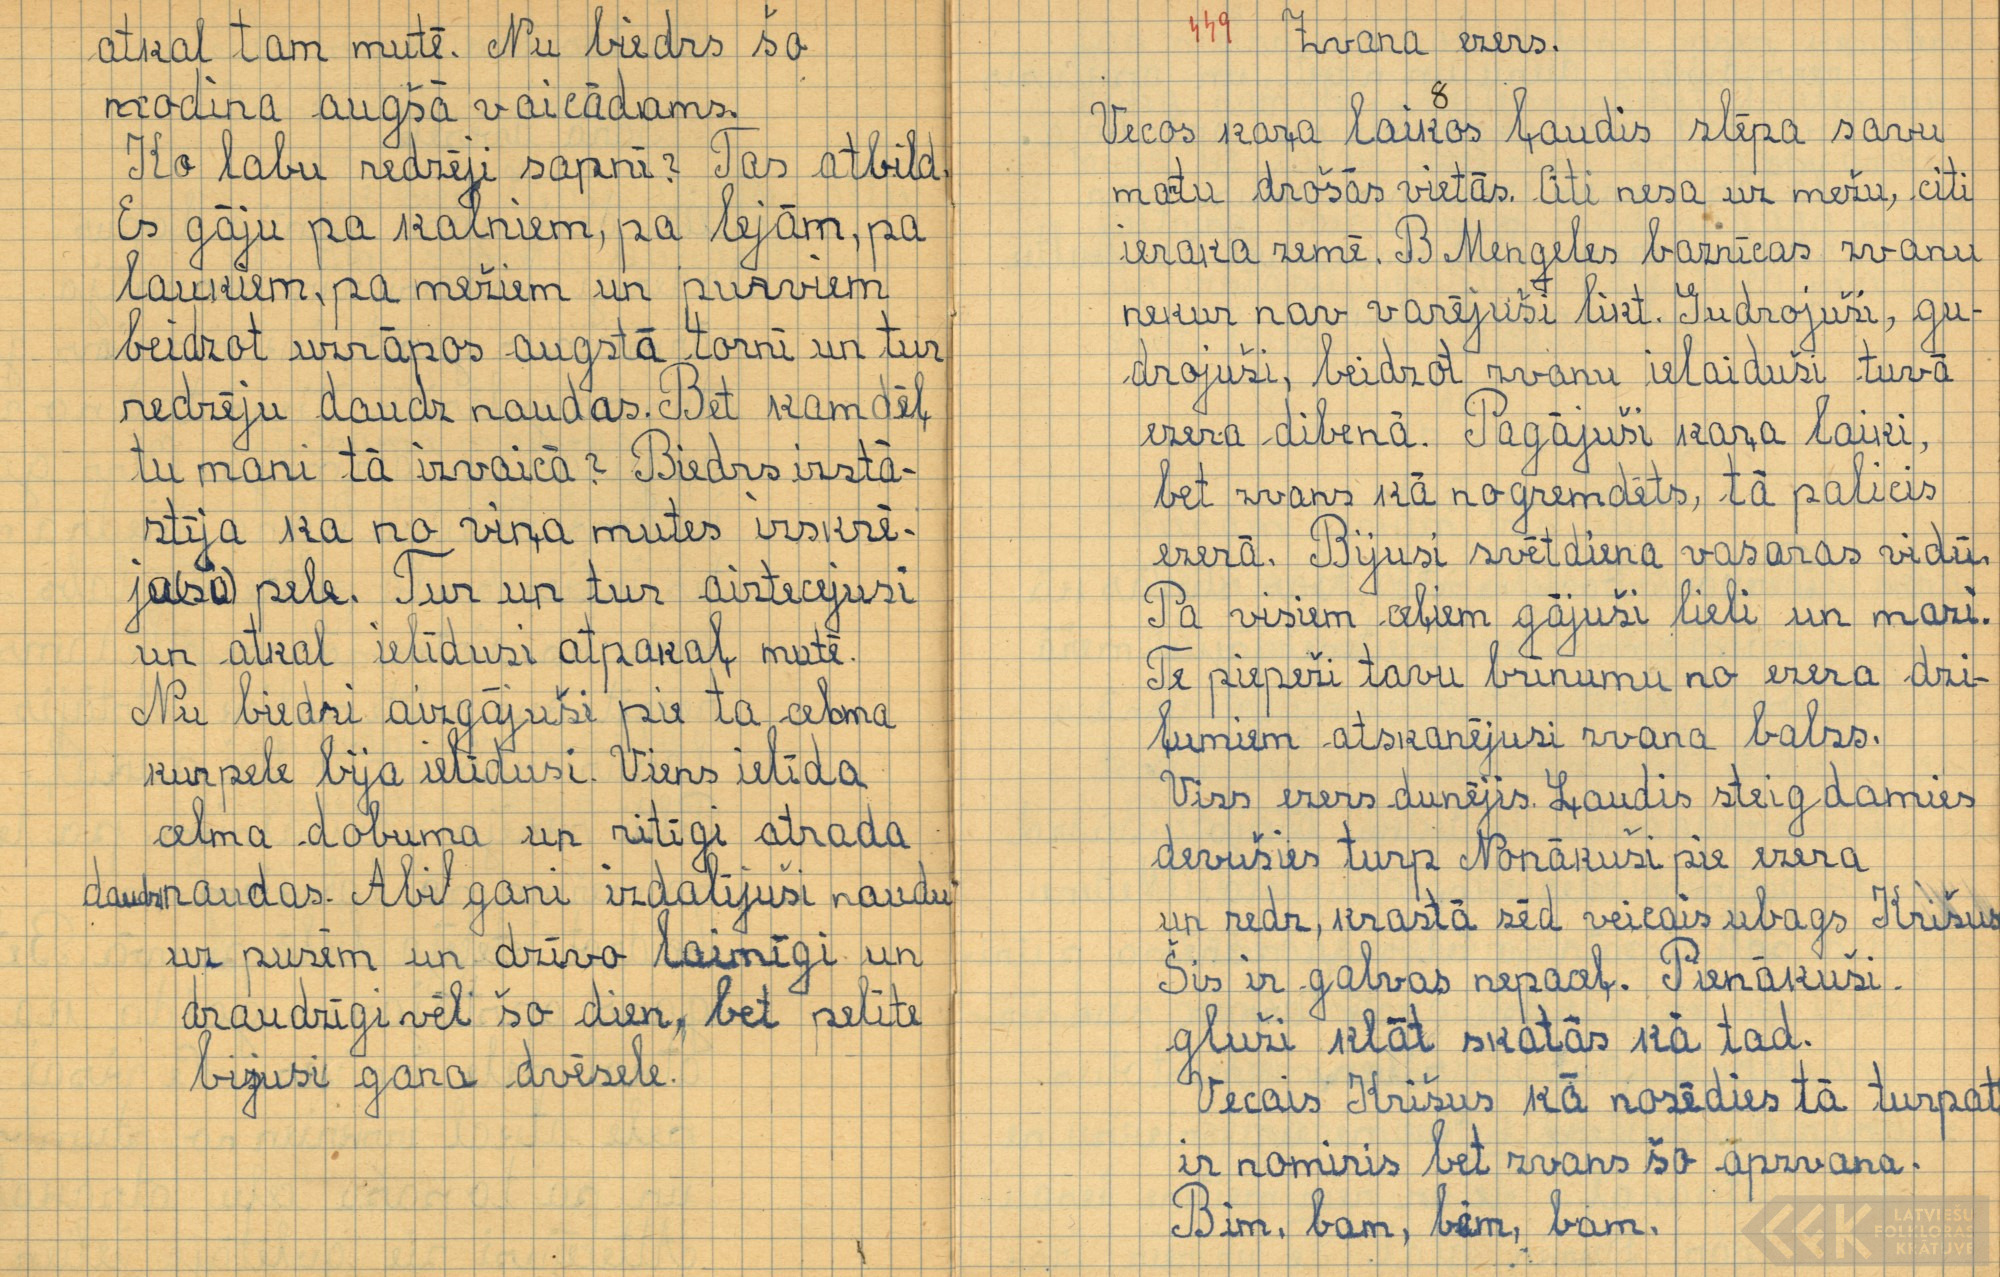 atkal tam mutē. Nu biedrs šo
modina augšā vaicādams.
Ko labu redzēji sapnī? Tas atbild.
Es gāju pa kalniem, pa lejām, pa
laukiem, pa mežiem un purviem
beidzot uzrāpos augstā tornī un tur
redzēju daudz naudas. Bet kamdēļ
tu mani tā izvaicā? Biedrs izstā-
stīja ka no viņa mutes izskrē-
ja(so) pele. Tur un tur aiztecejusi
un atkal ielīdusi atpakaļ mutē.
Nu biedri aizgājuši pie ta celma
kur pele bija ielīdusi. Viens ielīda
celma dobuma un ritīgi atrada
daudz naudas. Abi gani izdalījuši naudu
uz pusēm un dzīvo laimīgi un
draudzīgi vēl šo dien, bet pelīte
bijusi gana dvēsele.
449 Zvana ezers.
8
Vecos kaŗa laikos ļaudis slēpa savu
mantu drošās vietās. Citi nesa uz mežu, citi
ieraka zemē. B Mengeles baznīcas zvanu
nekur nav varējuši likt. Gudrojuši, gu-
drojuši, beidzot zvanu ielaiduši tuvā
ezera dibenā. Pagājuši kaŗa laiki,
bet zvans kā nogremdēts, tā palicis
ezerā. Bijusi svētdiena vasaras vidū.
Pa visiem ceļiem gājuši lieli un mazi.
Te piepeži tavu brīnumu no ezera dzi-
ļumiem atskanējusi zvana balss.
Viss ezers dunējis. Ļaudis steigdamies
devušies turp Nonākuši pie ezera
un redz, krastā sēd veicais ubags Krišus
Šis ir galvas nepaceļ. Pienākuši
gluži klāt skatās kā tad.
Vecais Krišus kā nosēdies tā turpat
ir nomiris bet zvans šo apzvana.
Bim, bam, bim, bam.
LATVIEŠU
FOLKLORAS
KRĀTUVE